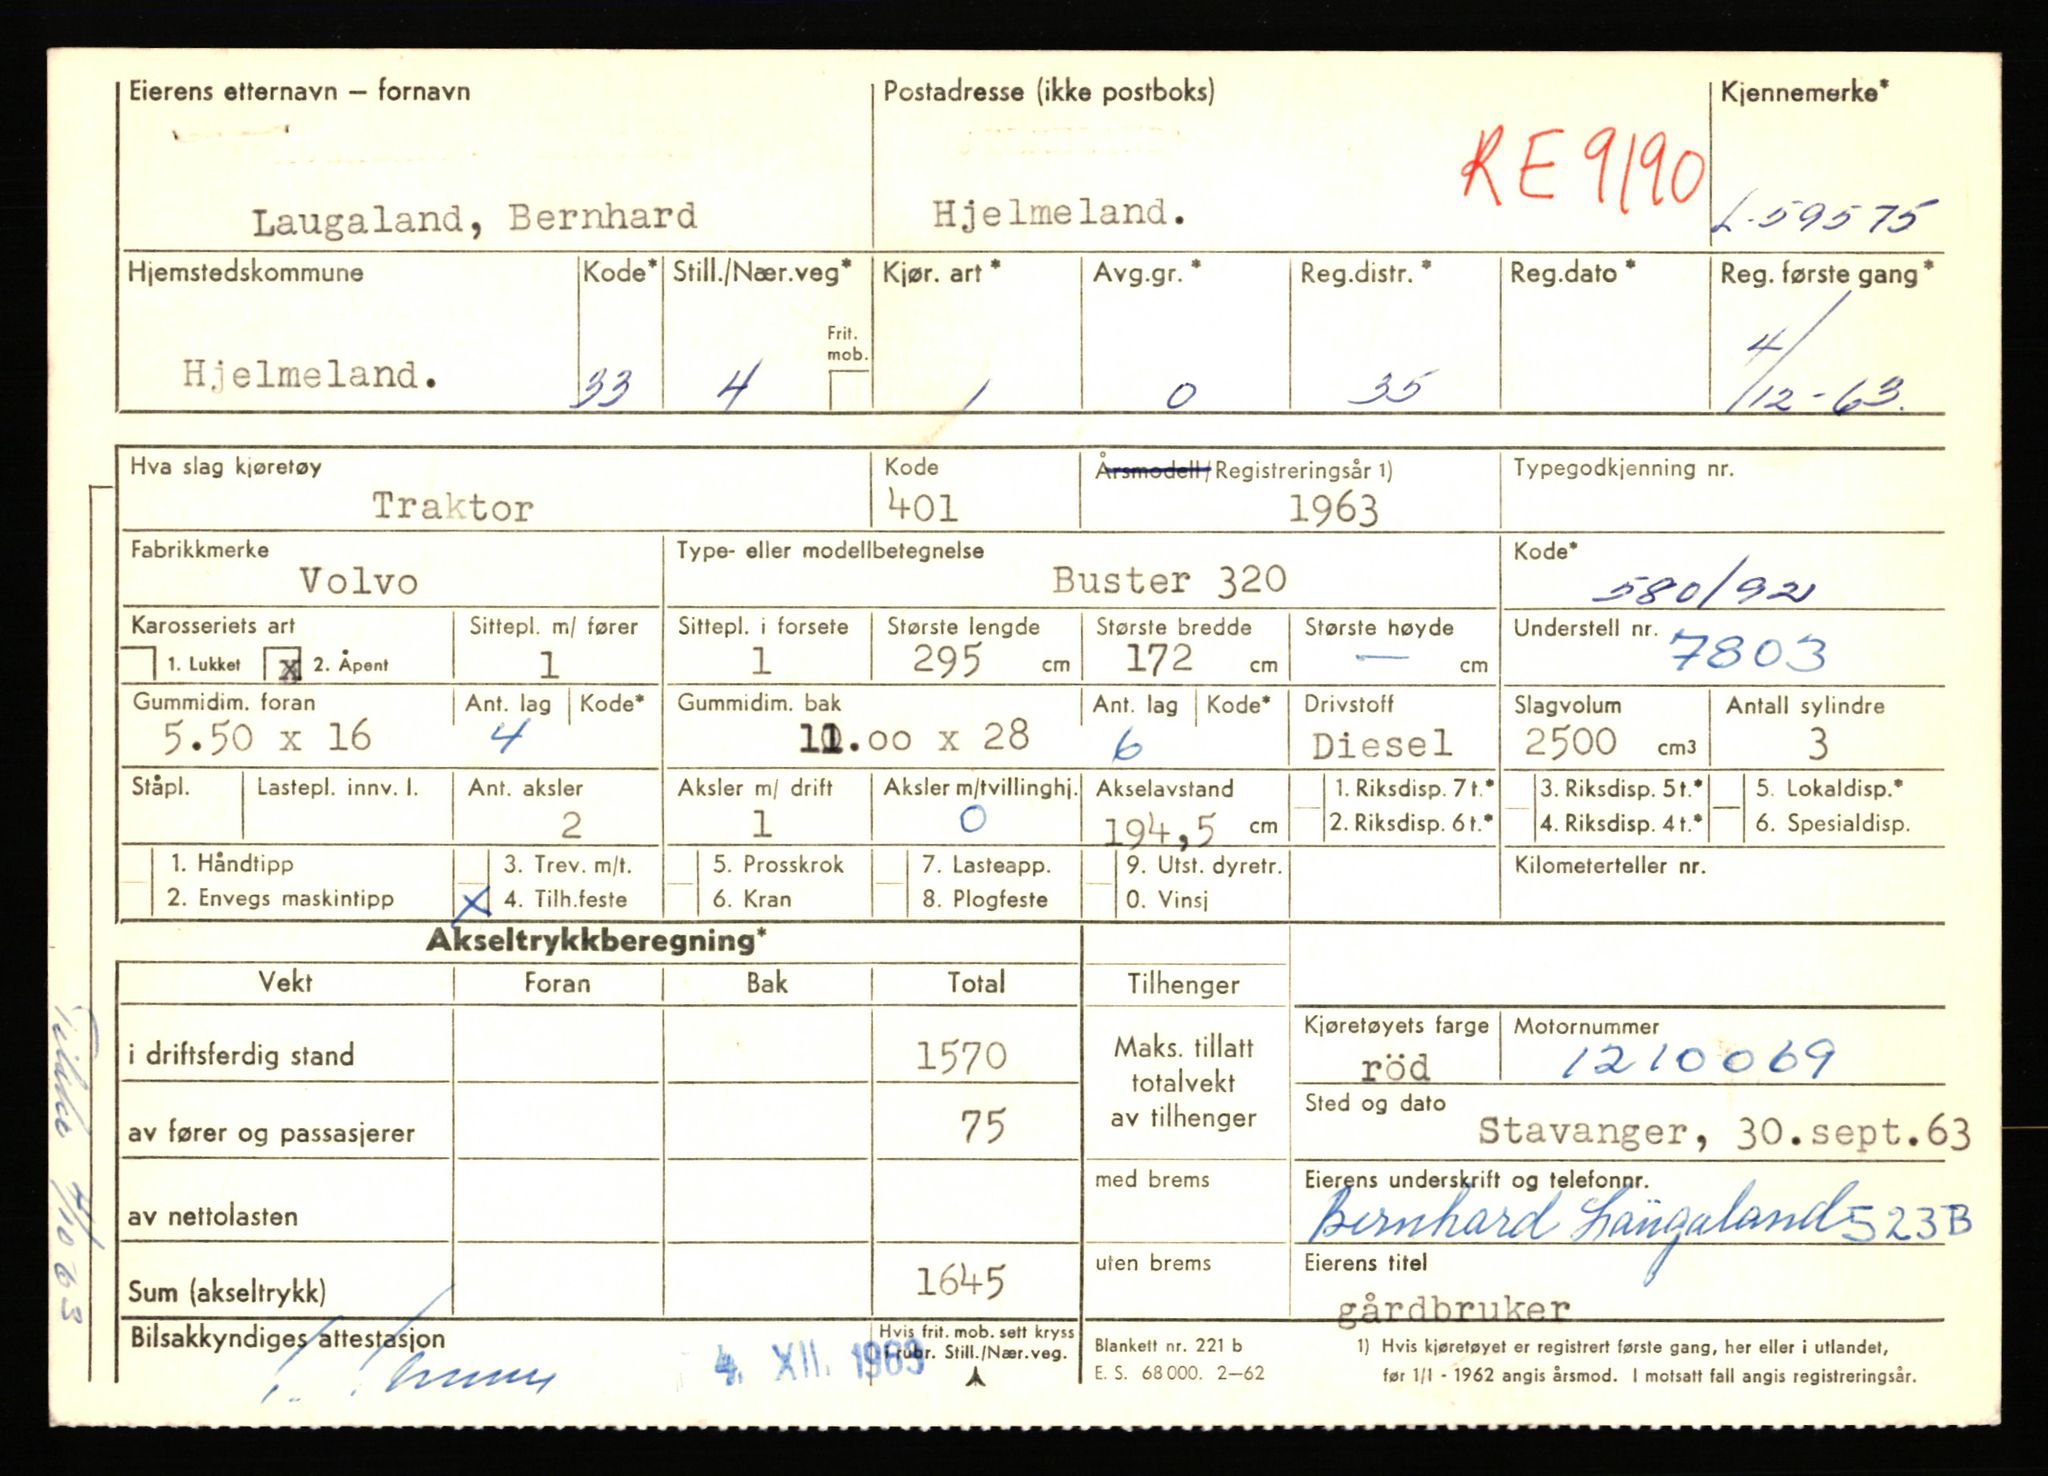 Eierens etternavn – fornavn
Postadresse (ikke postboks)
Kjennemerke*
RE 9190
Laugaland, Bernhard
Hjelmeland.
L-59575
Hjemstedskommune
Kode*
Still./Nær.veg*
Kjør. art*
Avg.gr.*
Reg.distr.*
Reg.dato*
Reg. første gang*
Frit. mob.
Hjelmeland.
33
4
1
0
35
4/12-63.
Hva slag kjøretøy
Kode
Årsmodell/Registreringsår 1)
Typegodkjenning nr.
Traktor
401
1963
Fabrikkmerke
Type- eller modellbetegnelse
Kode*
Volvo
Buster 320
580/92
Karosseriets art
Sittepl. m/ fører
Sittepl. i forsete
Største lengde
Største bredde
Største høyde
Understell nr.
1. Lukket
x 2. Åpent
1
1
295 cm
172 cm
— cm
7803
Gummidim. foran
Ant. lag
Kode*
Gummidim. bak
Ant. lag
Kode*
Drivstoff
Slagvolum
Antall sylindre
5.50 x 16
4
11.00 x 28
6
Diesel
2500 cm3
3
Ståpl.
Lastepl. innv. l.
Ant. aksler
Aksler m/ drift
Aksler m/tvillinghj.
Akselavstand
1. Riksdisp. 7 t.*
3. Riksdisp. 5 t.*
5. Lokaldisp.*
2
1
0
194,5 cm
2. Riksdisp. 6 t.*
4. Riksdisp. 4 t.*
6. Spesialdisp.
1. Håndtipp
3. Trev. m/t.
5. Prosskrok
7. Lasteapp.
9. Utst. dyretr.
Kilometerteller nr.
2. Envegs maskintipp
x 4. Tilh.feste
6. Kran
8. Plogfeste
0. Vinsj
Akseltrykkberegning*
Vekt
Foran
Bak
Total
Tilhenger
i driftsferdig stand
1570
Maks. tillatt
totalvekt
av tilhenger
Kjøretøyets farge
Motornummer
röd
1210069
av fører og passasjerer
75
Sted og dato
Stavanger, 30.sept.63
av nettolasten
med brems
Eierens underskrift og telefonnr.
Bernhard Laugaland 523B
Sum (akseltrykk)
1645
uten brems
Eierens titel
gårdbruker
Bilsakkyndiges attestasjon
4. XII. 1963
Hvis frit. mob. sett kryss
i rubr. Still./Nær.veg.
Blankett nr. 221 b
E. S. 68 000. 2–62
1) Hvis kjøretøyet er registrert første gang, her eller i utlandet,
før 1/1 - 1962 angis årsmod. I motsatt fall angis registreringsår.
4/10 63